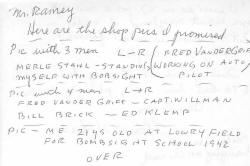 Mr. Ramey
Here are the shop pics I promised
Pic with 3 men L-R (FRED VANDERGRIFT
MERLE STAHL - STANDING (WORKING ON AUTO
MYSELF WITH BOBSIGHT PILOT
Pic with 4 men L→R
FRED VANDER GRIFT - CAPT. WILLMAN
BILL BRICK - ED KLEMP
PIC - ME 21 YRS OLD AT LOWRY FIELD
FOR BOMBSIGHT SCHOOL 1942
OVER